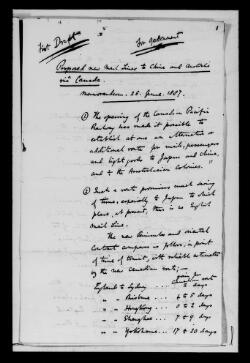 1
First Draft
For
Proposed new Mail Lines to China and Australia
viâ Canada.
Memorandum. 25. June. 1887.
① The opening of the Canadian Pacific
Railway has made it possible to
establish at once an alternative or
additional route for mail, passengers
and light goods to Japan and China,
and to the Australasian Colonies.
② Such a route promises much saving
of time, especially to Japan to which
place, at present, there is no English
Mail Line.
The new Peninsular and Oriental
contract compares as follows, in point
of time of transit, with reliable estimates
by the new Canadian route; —
England to Sydney 2 days
" " Brisbane 4 to 5 days
" " Hongkong 2 days
" " Shanghai 7 to 9 days
" " Yokohama 17 to 20 days